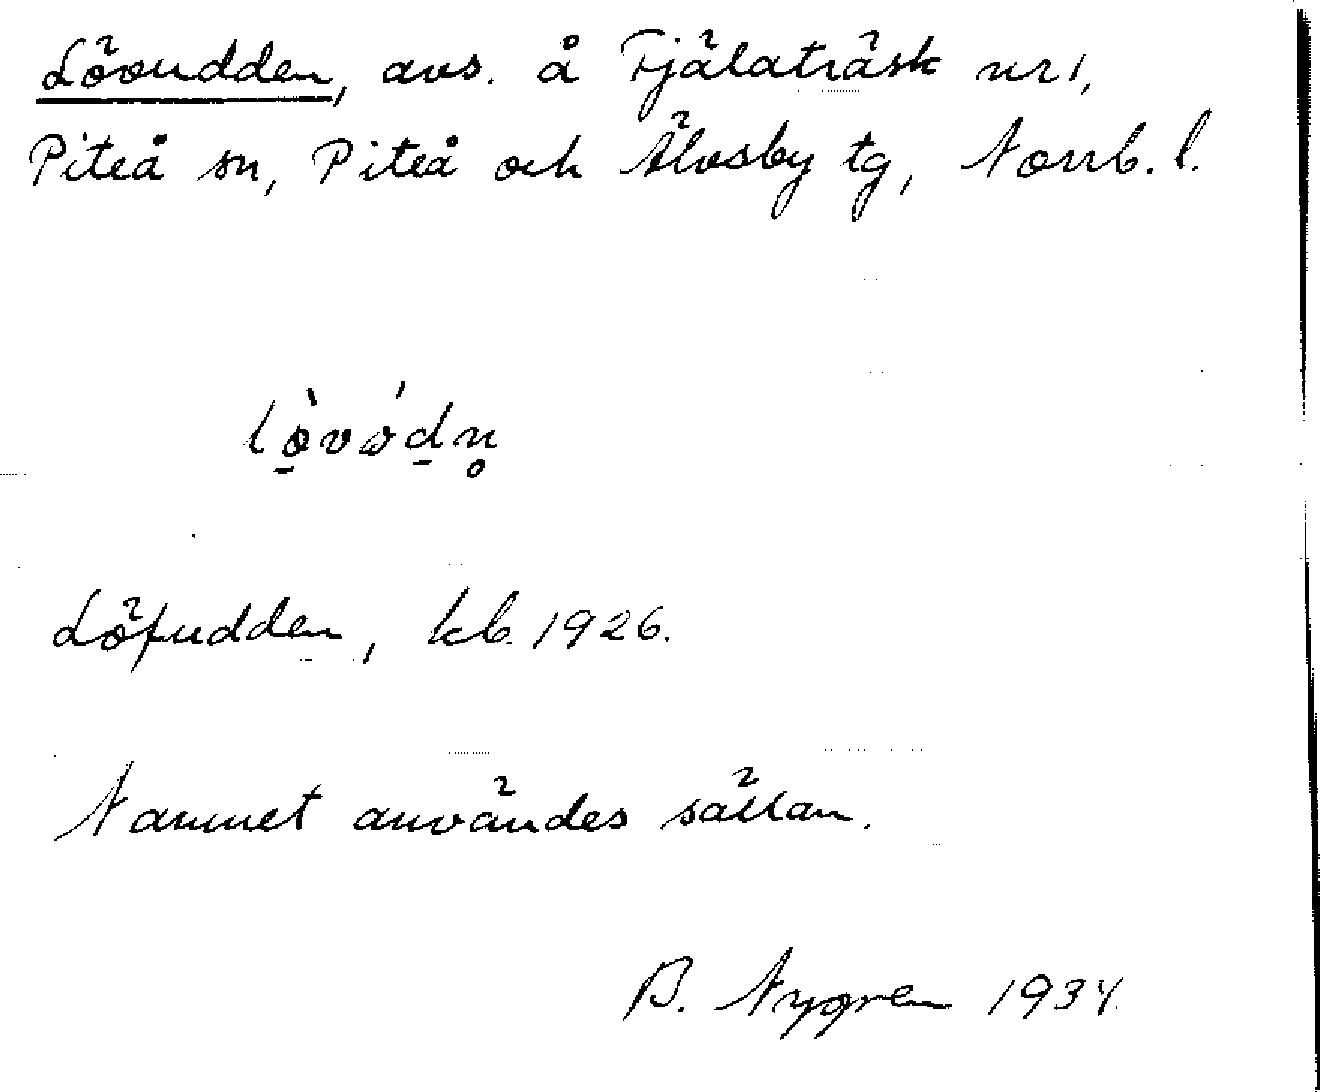 Lövudden, avs. å Fjälaträsk nr 1,
Piteå sn, Piteå och Älvsby tg, Norrb. l.
lò̱vóḏn̥
Löfudden, kb. 1926.
Namnet användes sällan.
B. Nygren 1934.